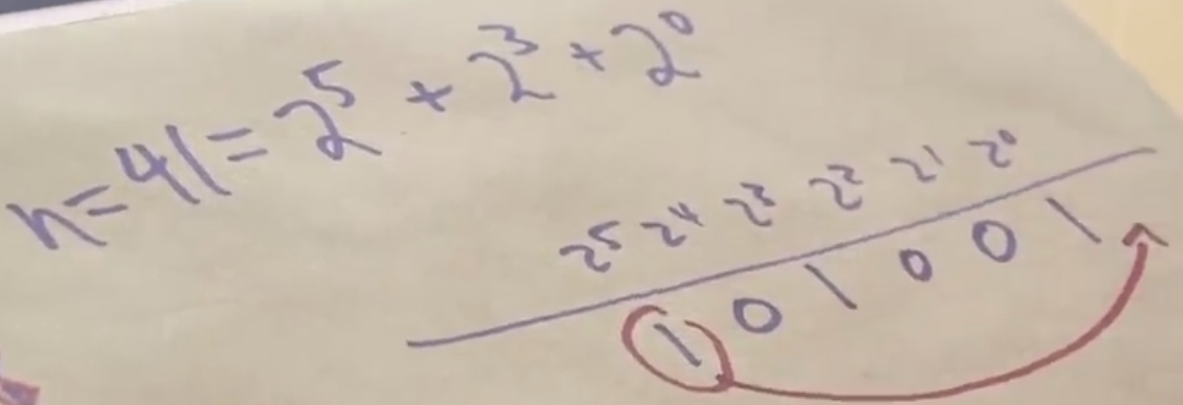 n=41=2⁵+2³+2⁰
2⁵ 2⁴ 2³ 2² 2¹ 2⁰
1 0 1 0 0 1